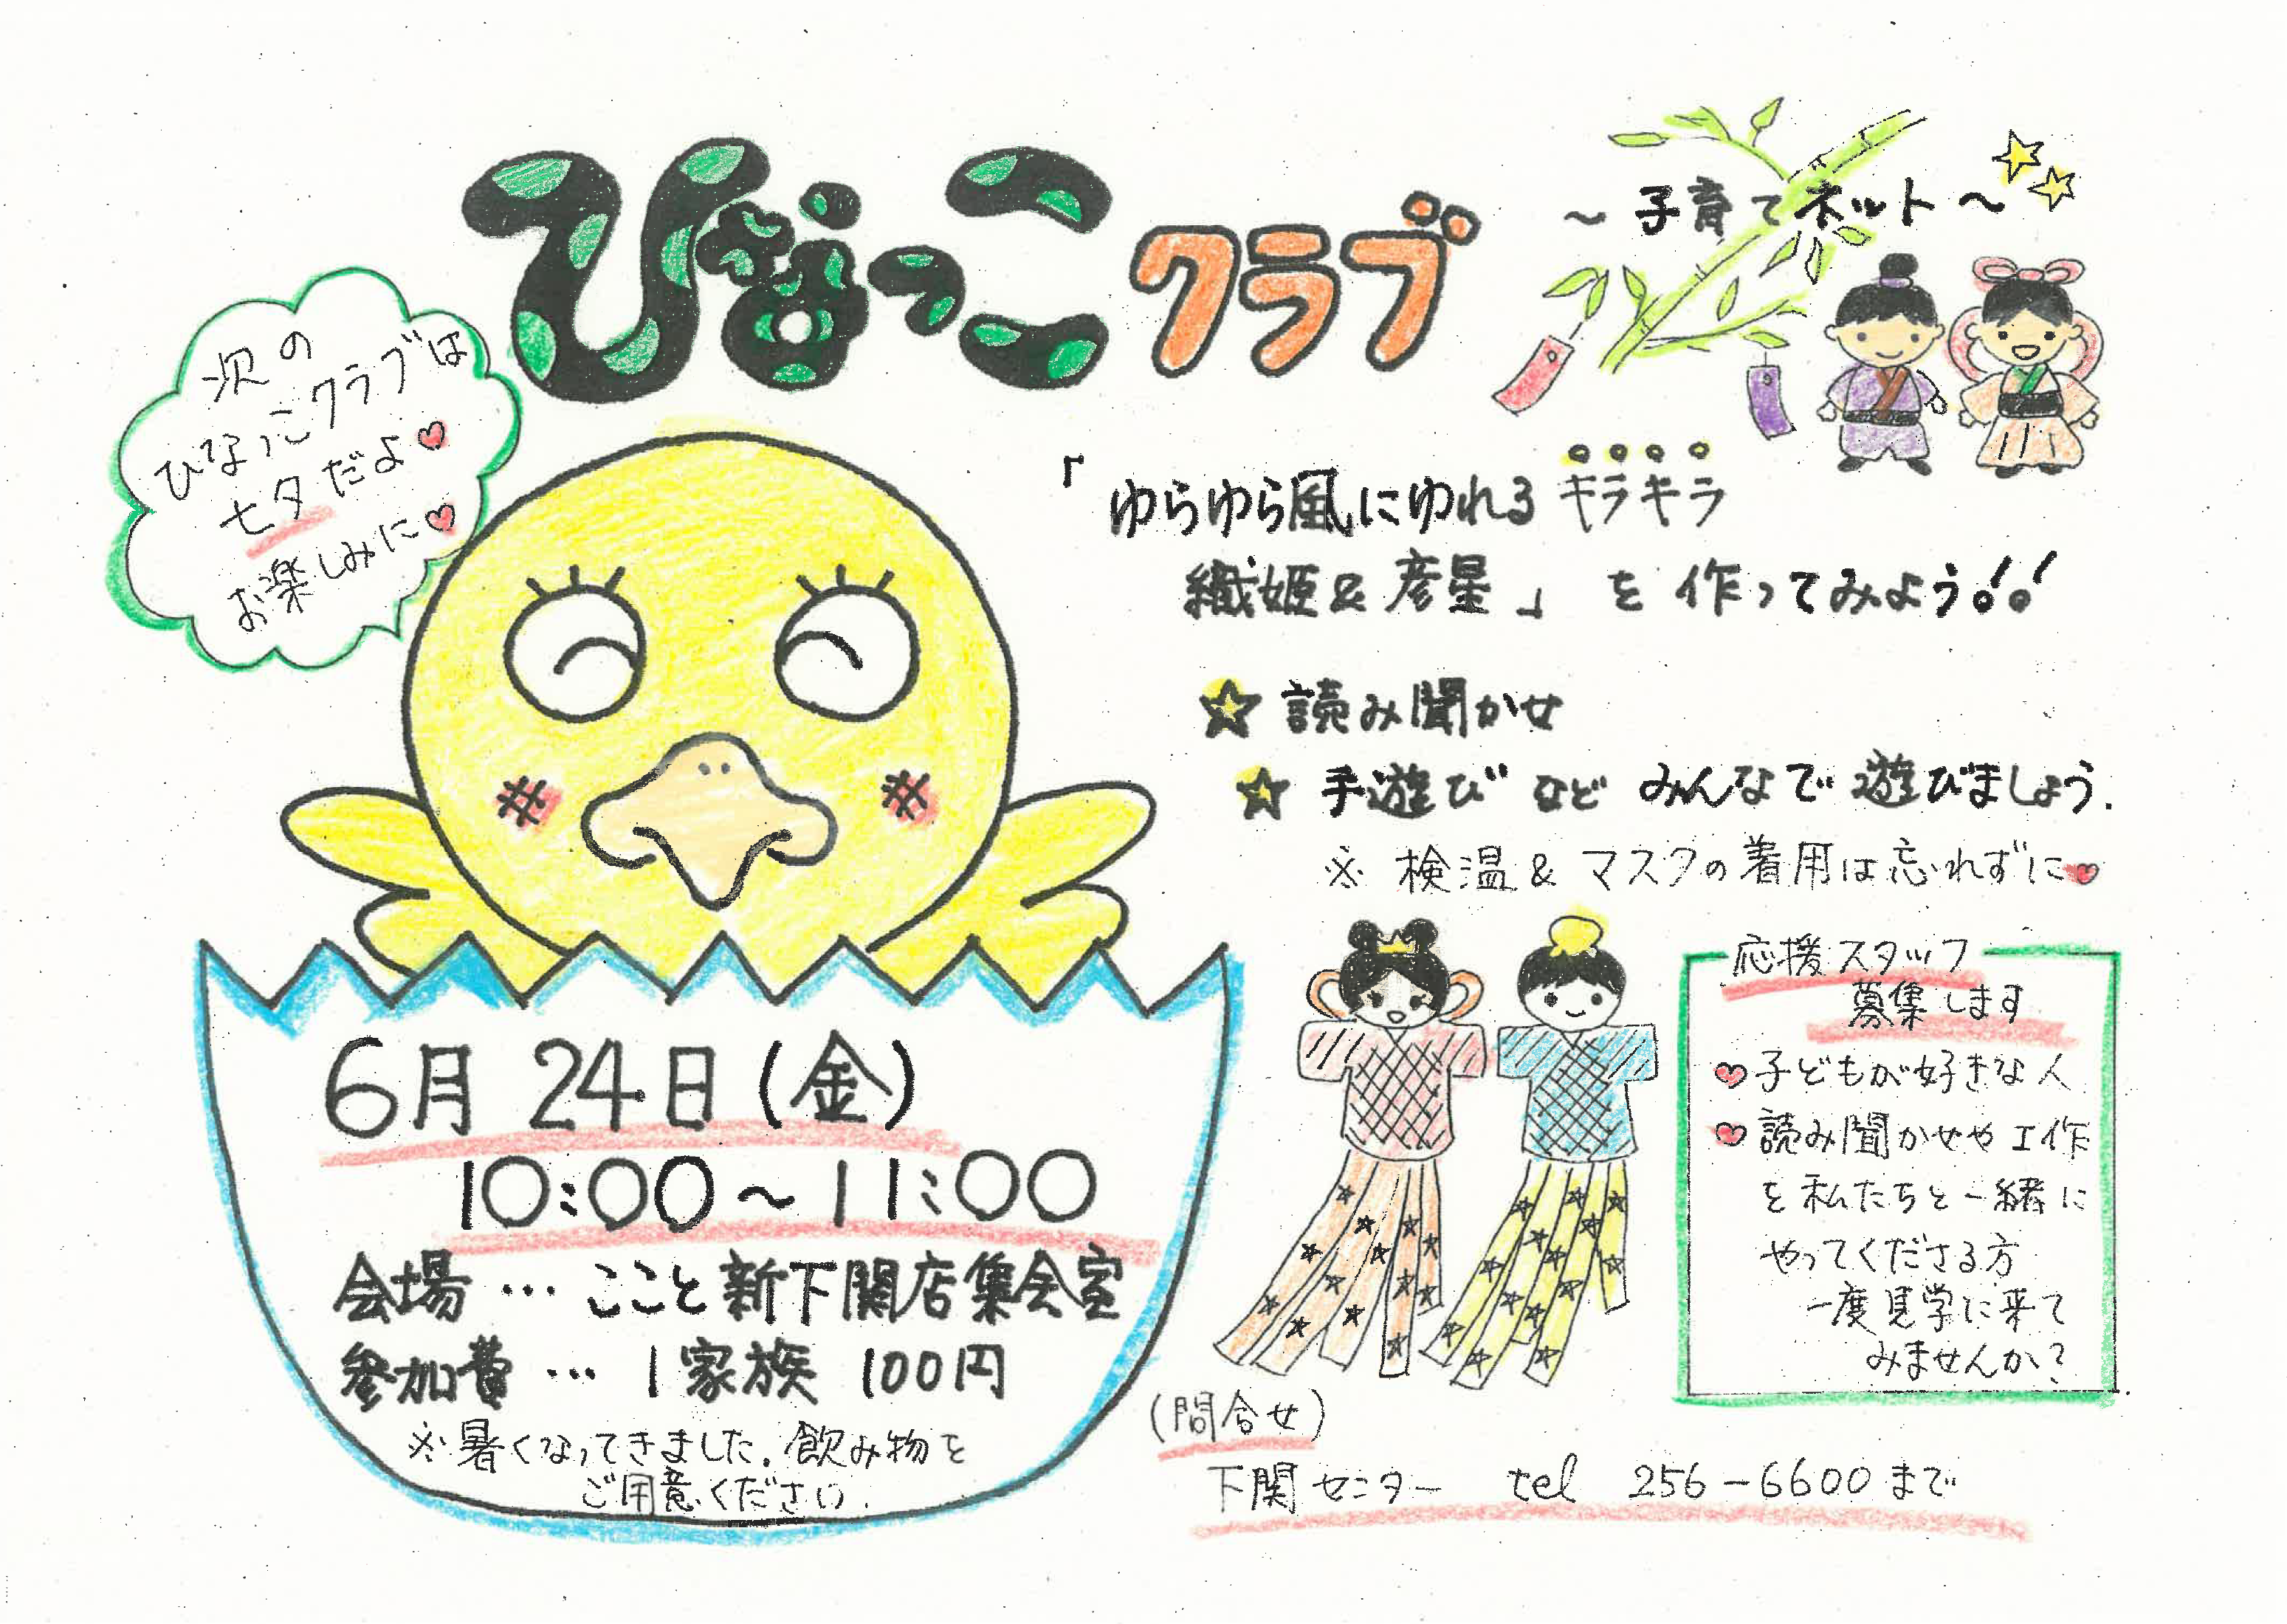 ひなっこクラブ
～子育てネット～
次の
ひなっこクラブは
七夕だよ♡
お楽しみに♡
「ゆらゆら風にゆれるキラキラ
織姫&彦星」を作ってみよう!!
☆読み聞かせ
☆手遊びなどみんなで遊びましょう.
※検温&マスクの着用は忘れずに♡
6月24日(金)
10:00～11:00
会場…ここと新下関店集会室
参加費…1家族100円
※暑くなってきました.飲み物を
ご用意ください.
応援スタッフ
募集します
♡子どもが好きな人
♡読み聞かせや工作
を私たちと一緒に
やってくださる方
一度見学に来て
みませんか?
(問合せ)
下関センター tel 256-6600まで